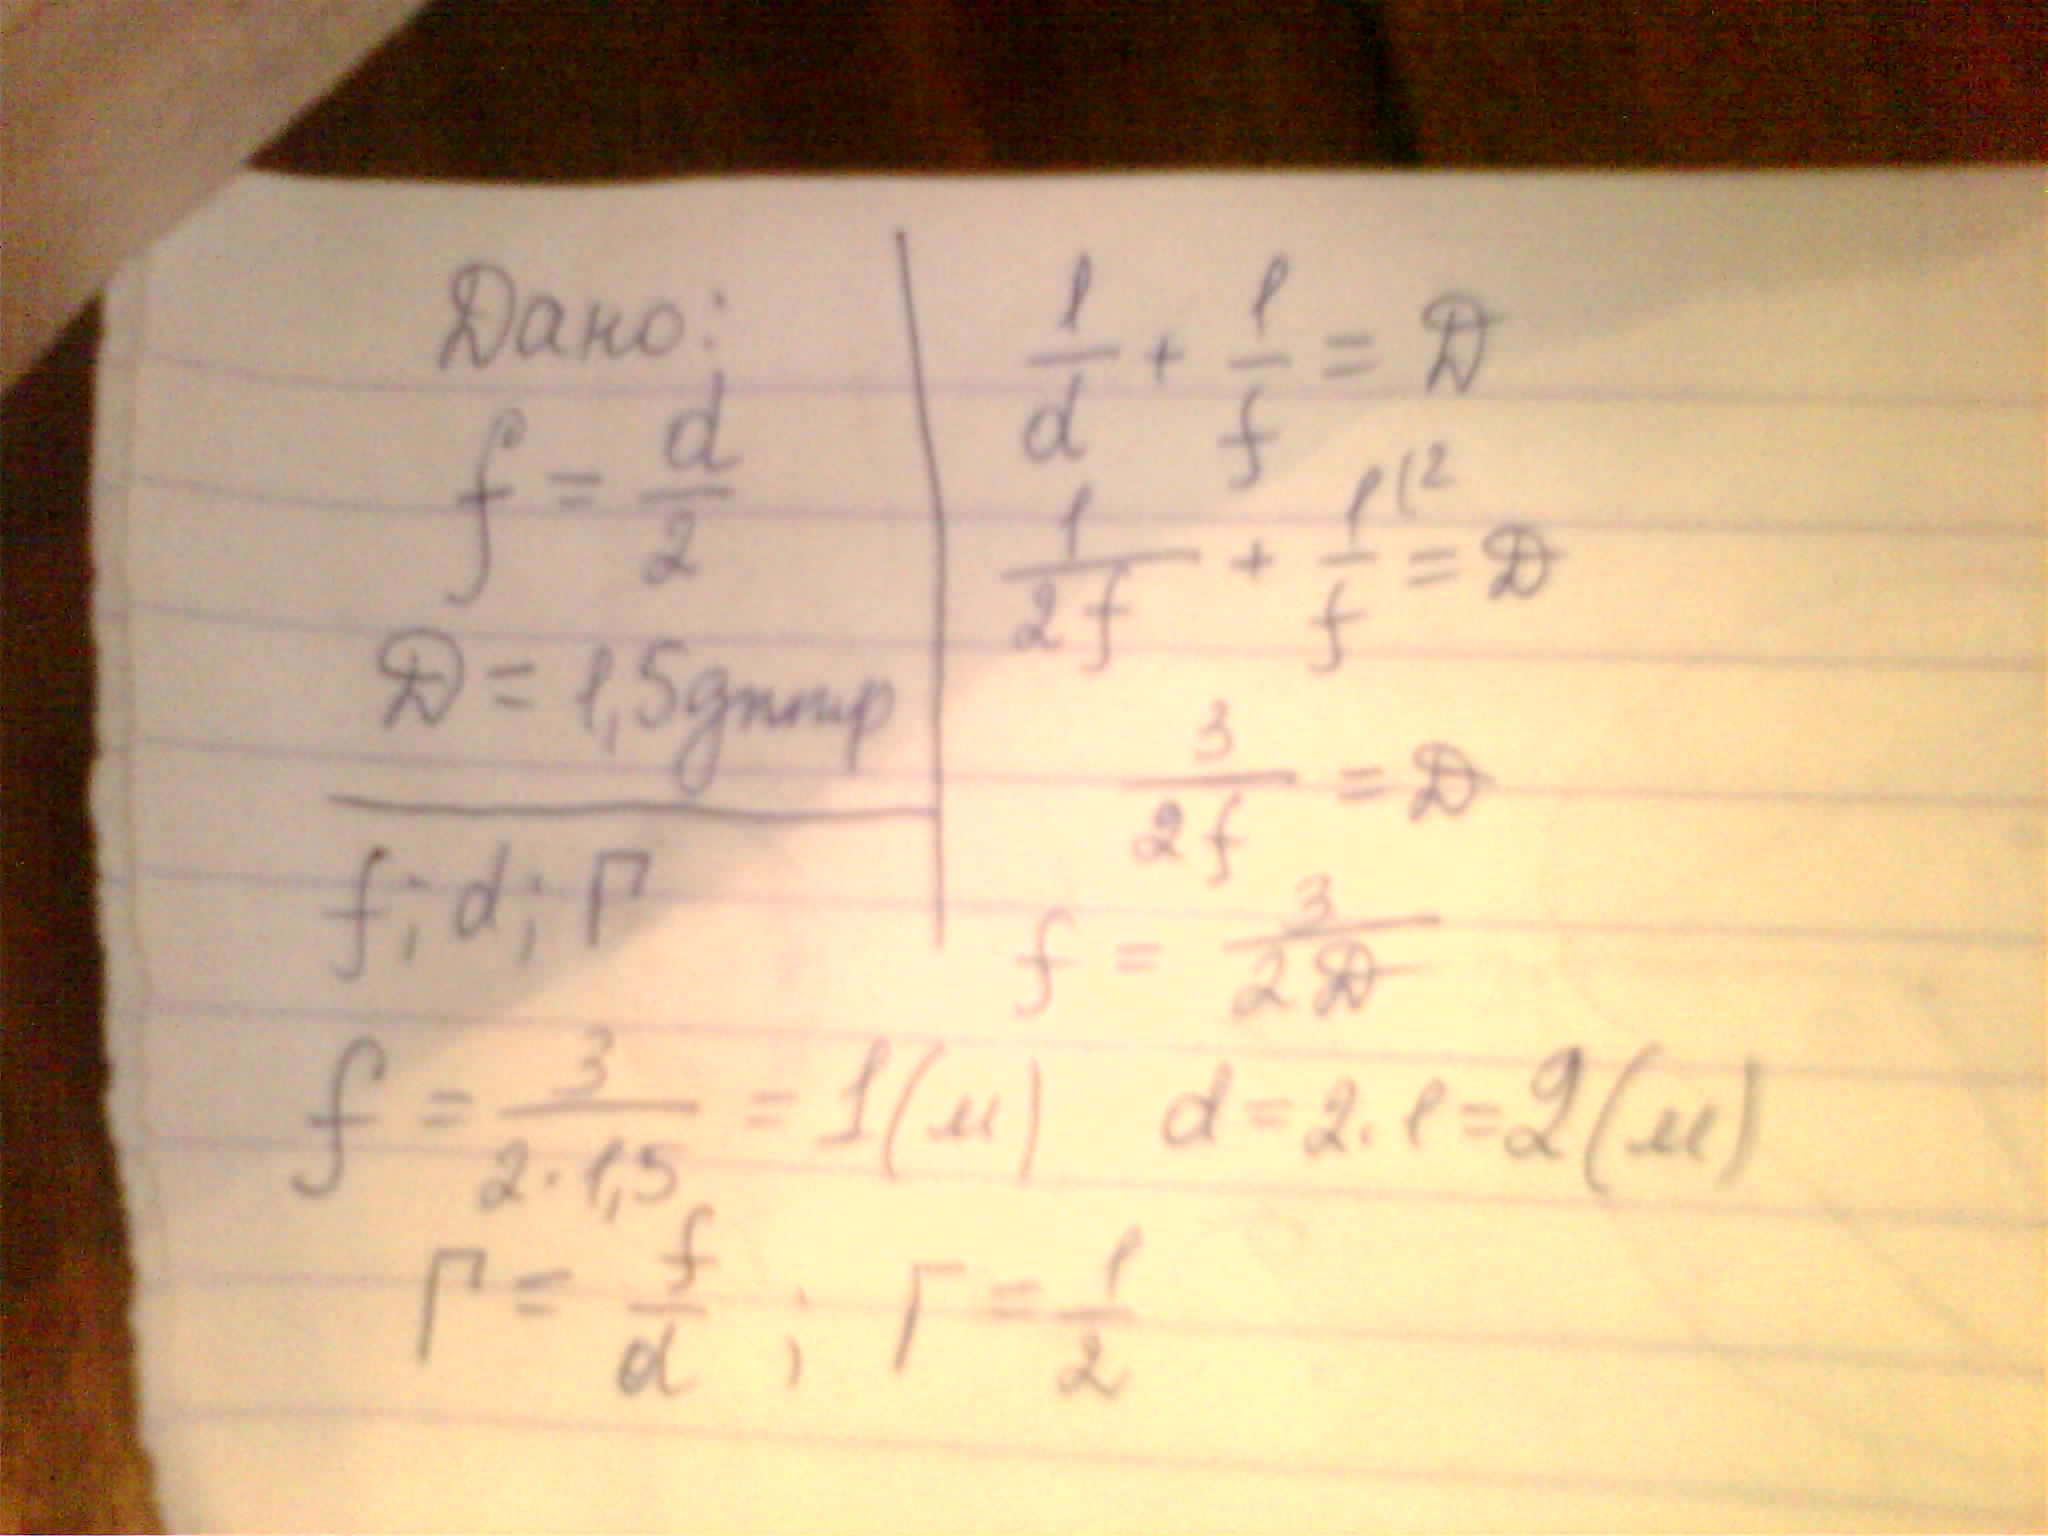 Дано:
f = d/2
D = 1,5 дптр
f; d; Г
1/d + 1/f = D
1/2f + 1/f (2 = D
3/2f = D
f = 3/2D
f = 3/2·1,5 = 1 (м) d = 2·1 = 2 (м)
Г = f/d ; Г = 1/2